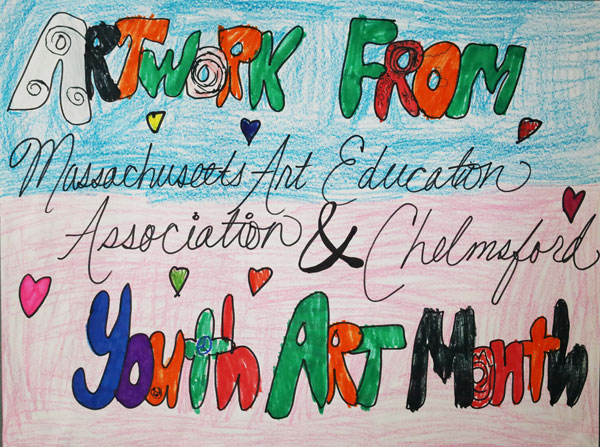 ARTWORK FROM
Massachusetts Art Education
Association & Chelmsford
Youth ART Month